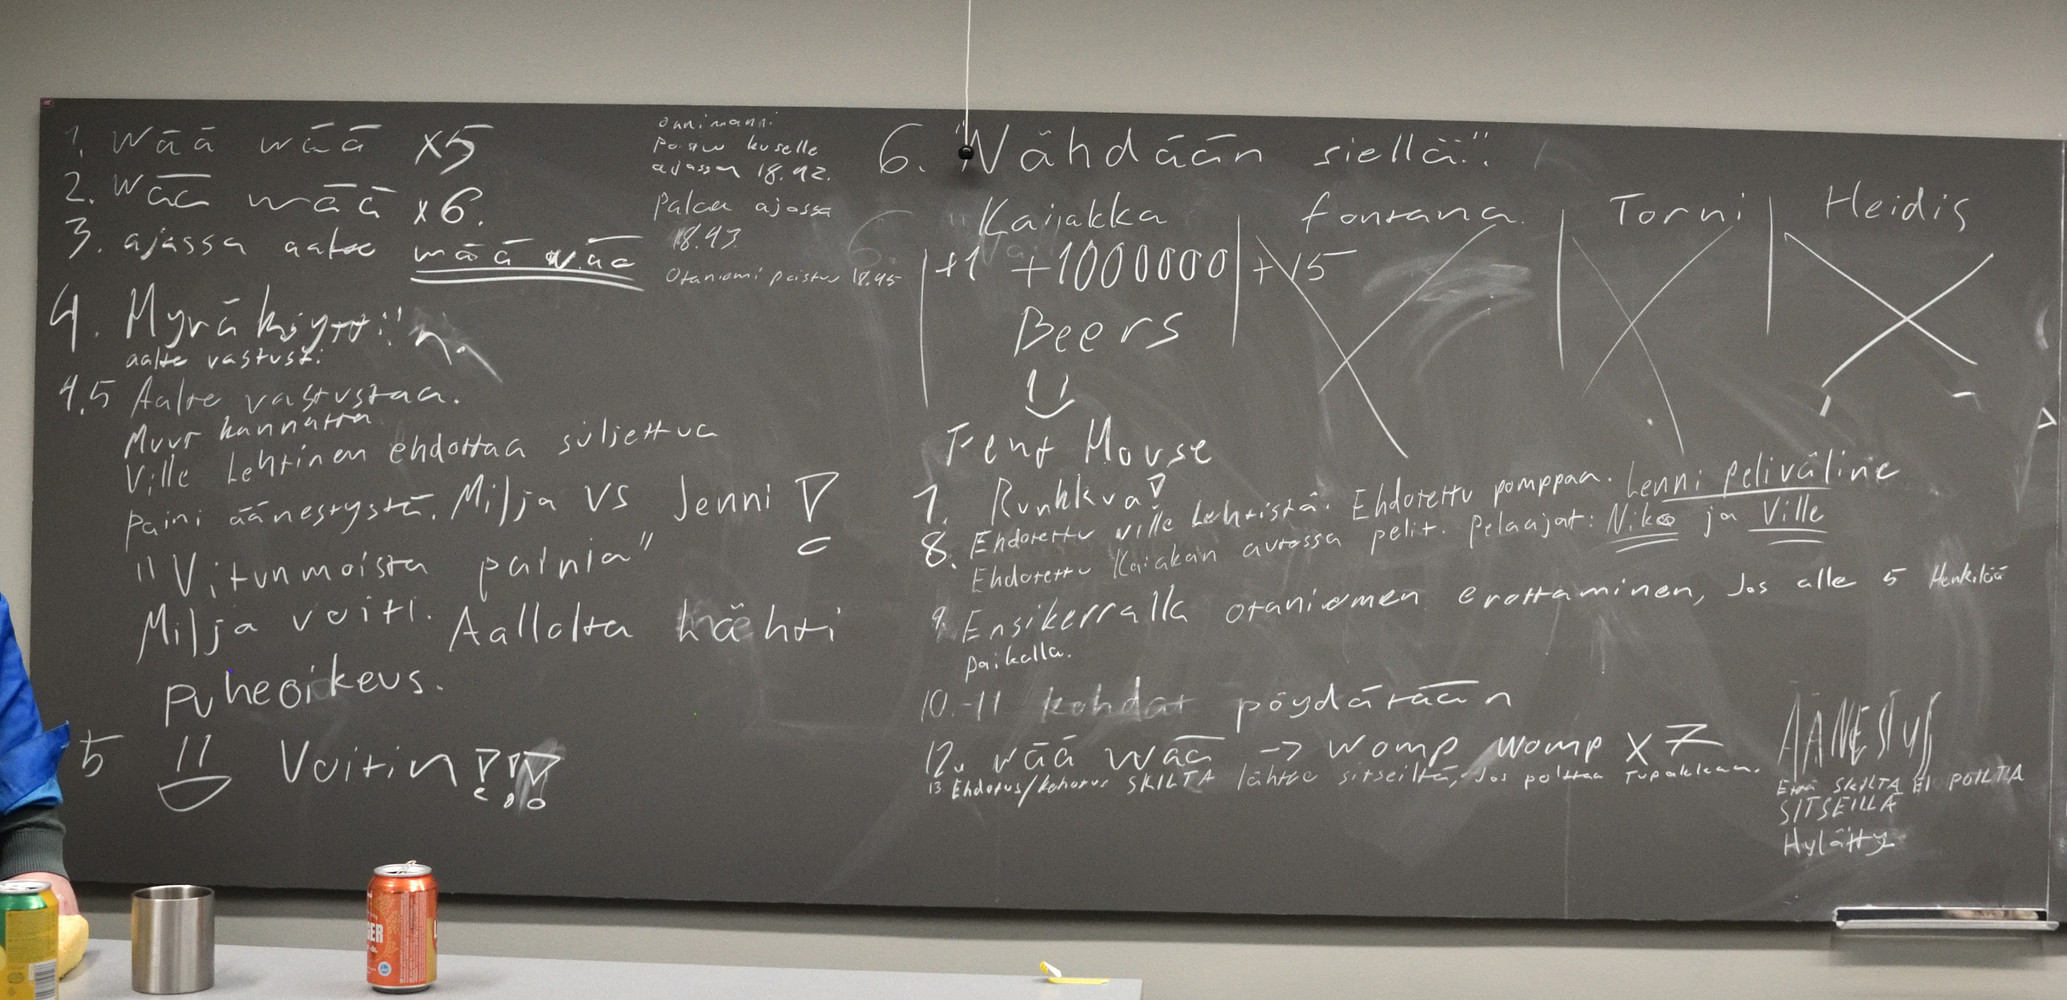 1. wää wää x5
2. wää wää x6.
3. ajassa aalto wää wää
4. Myräkäyttiin.
aalto vastusti.
4.5 Aalto vastustaa.
Muut kannattaa
Ville Lehtinen ehdottaa suljettua
paini äänestystä. Milja VS Jenni !
"Vitunmoista painia"
Milja voitti. Aallolta lähti
puheoikeus.
5 Voitin!!!
Onnimanni
Poistuu kuselle
ajassa 18.42.
Palaa ajassa
18.43
Otaniemi poistuu 18.45
6. "Nähdään siellä".
Kaijakka | fontana | Torni | Heidis
+1 +1000000 | +15
Beers
Fent House
7. Runkkua!
8. Ehdotettu Ville Lehtistä. Ehdotettu pomppaa. Lenni peliväline
Ehdotettu Kaiakan autossa pelit. Pelaajat: Niko ja Ville
9. Ensikerralla otaniemen erottaminen, Jos alle 5 Henkilöä
paikalla.
10.-11 kohdat pöydätään
12. wää wää -> womp womp x7
13 Ehdotus/kehotus SKILTA lähtee sitseiltä, Jos polttaa Tupakkaa.
ÄÄNESTYS
Että SKILTA EI POLTA
SITSEILLÄ
Hylätty